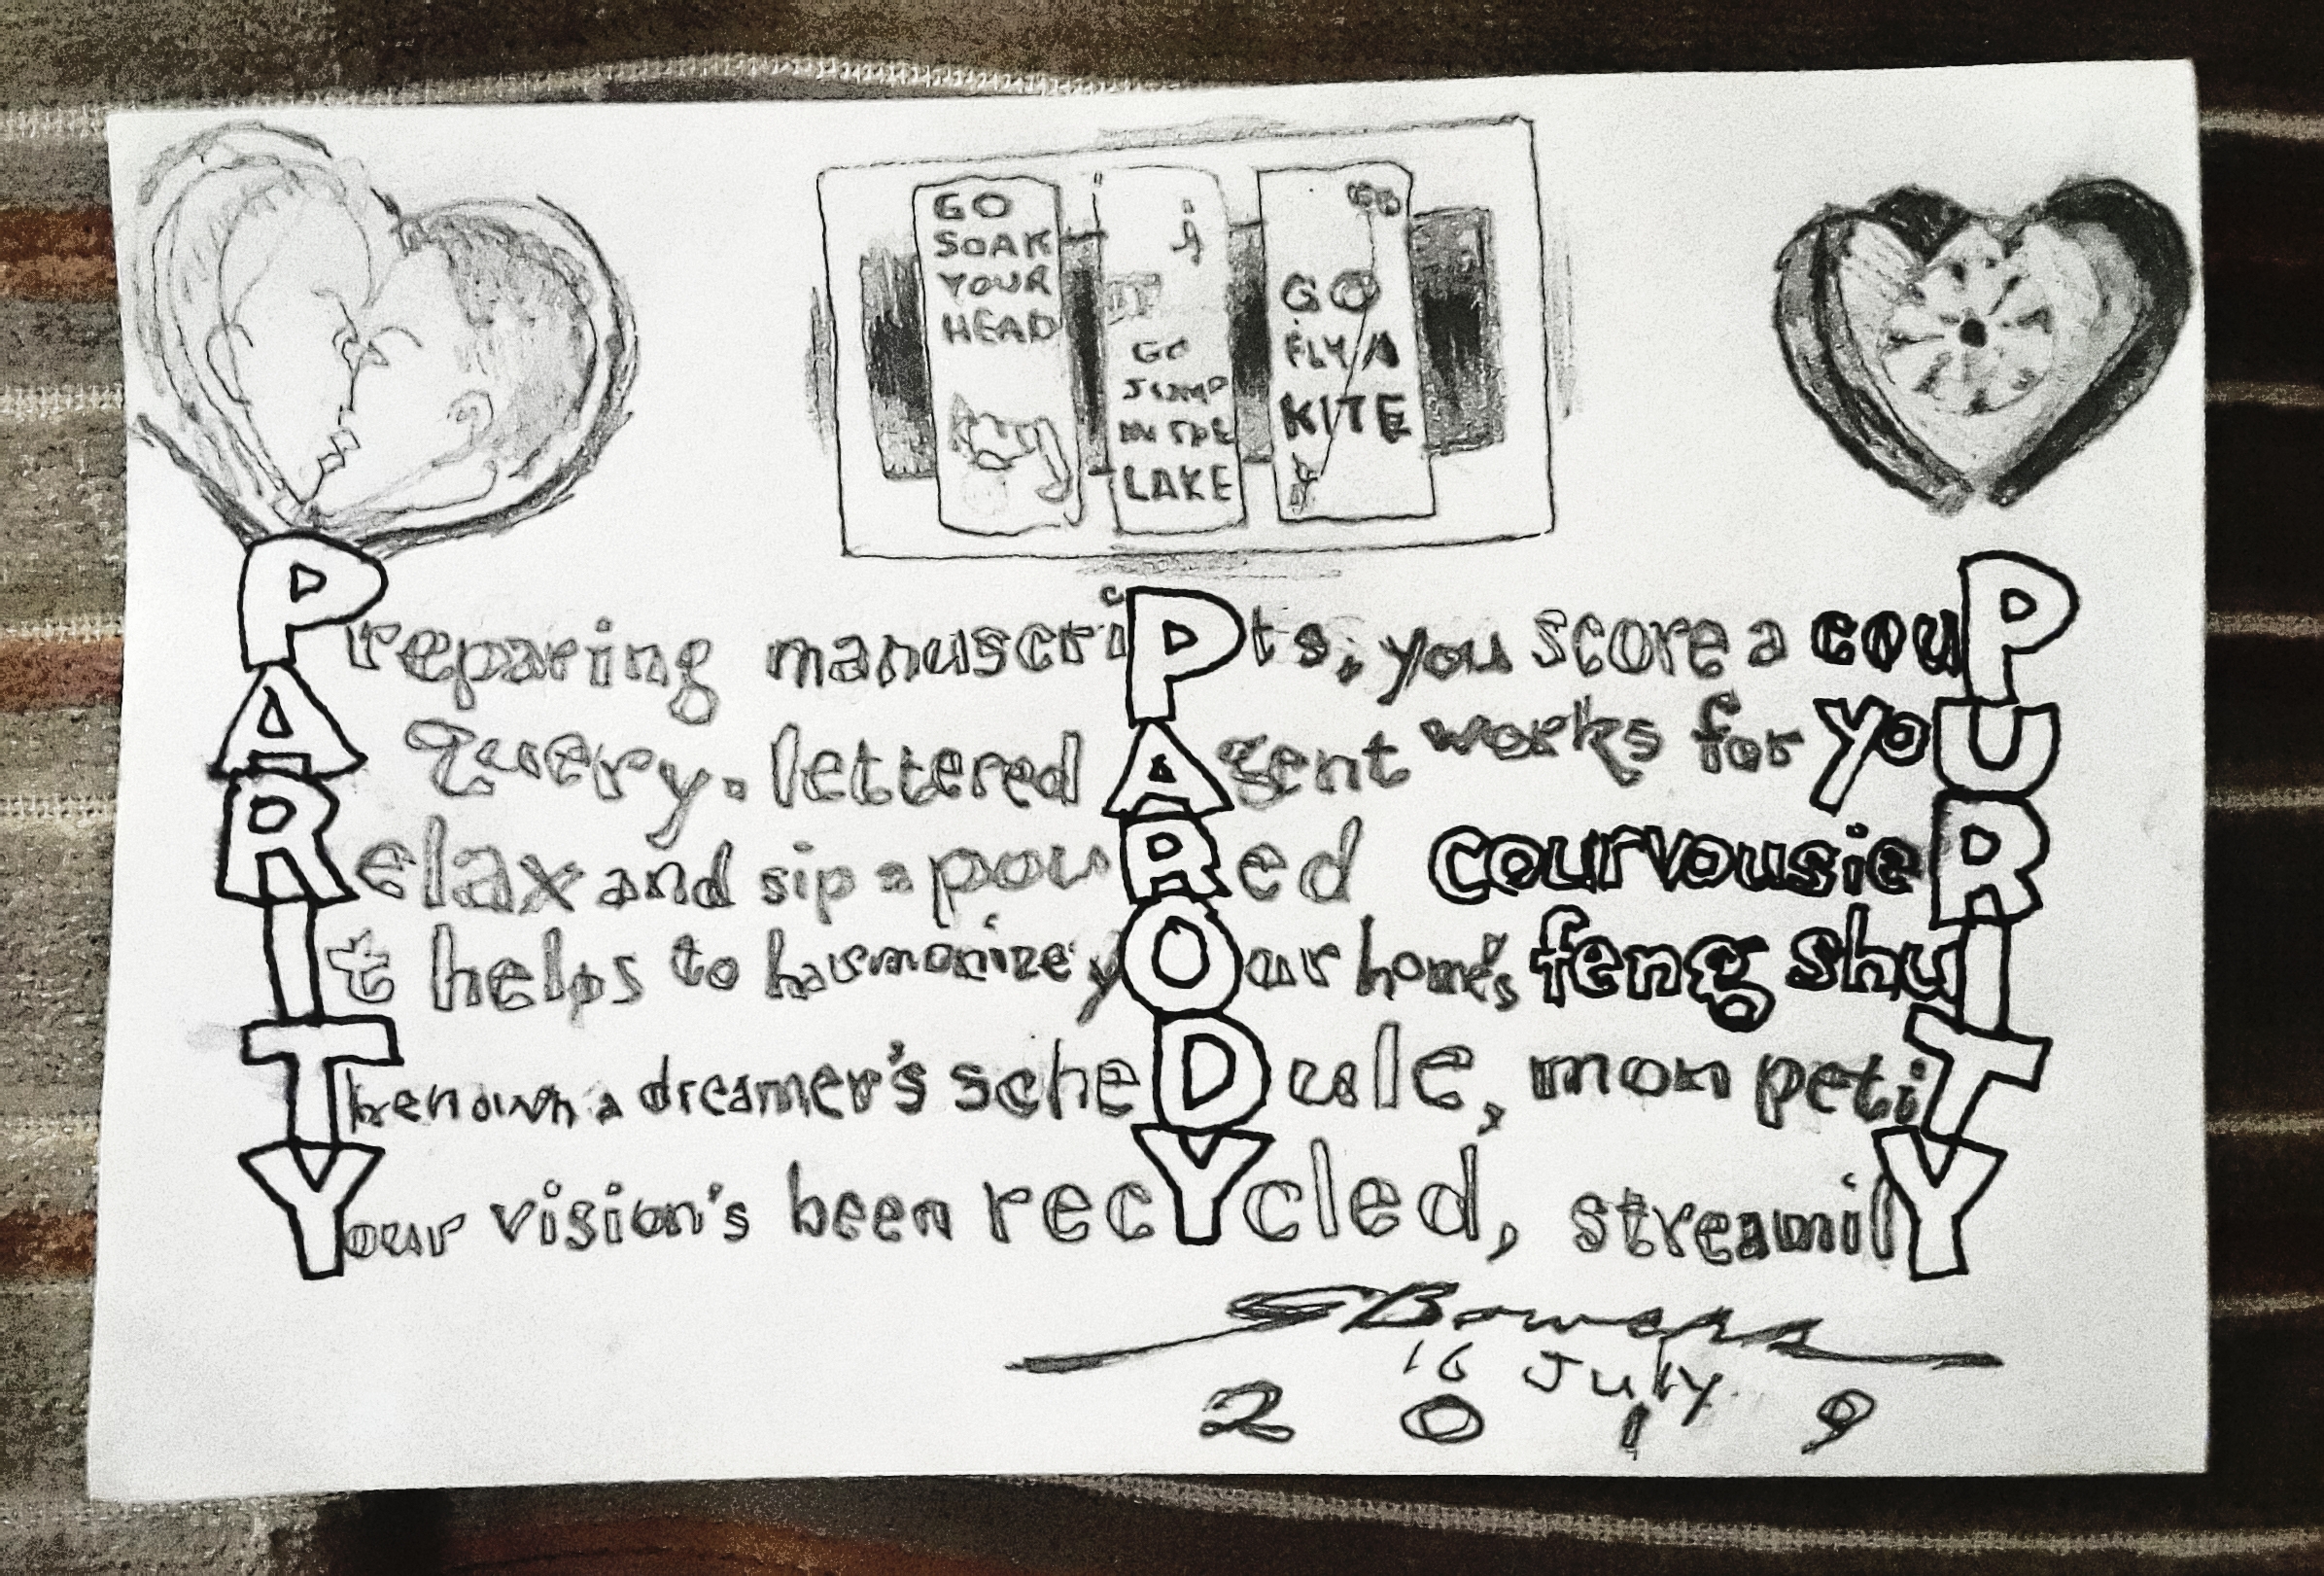 GO
SOAK
YOUR
HEAD
GO
JUMP
IN THE
LAKE
GO
FLY A
KITE
Preparing manuscriPts, you score a couP
A query-lettered Agent works for yoU
Relax and sip a pouRed courvousieR
It helps to harmonize yOur home's feng shuI
Then own a dreamer's scheDule, mon petiT
Your vision's been recYcled, streamilY
SBowers
16 July
2019